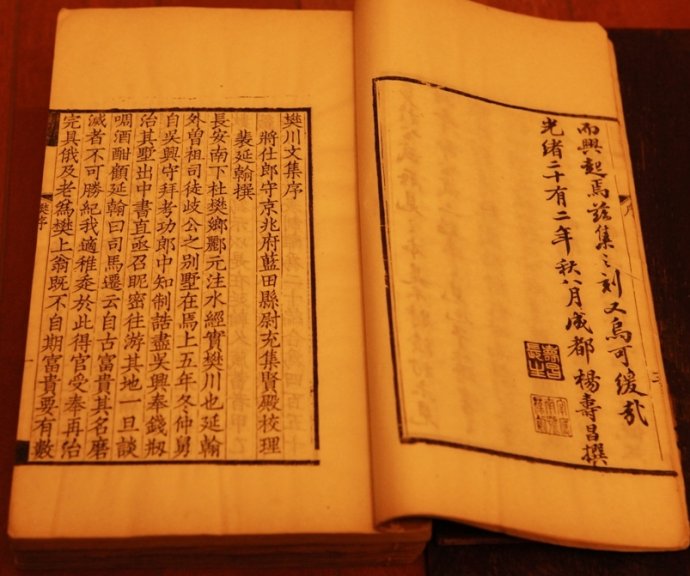 而興起焉茲集之刻又烏可緩哉
光緒二十有二年秋八月成都楊壽昌撰
樊川文集序
將仕郎守京兆府藍田縣尉充集賢殿校理
裴延翰撰
長安南下杜樊鄉酈元注水經實樊川也延翰
外曾祖司徒歧公之别墅在焉上五年冬仲舅
自吳興守拜考功郎中知制誥盡吳興奉錢刱
治其墅出中書直亟召昵密往游其地一旦談
啁酒酣顧延翰曰司馬遷云自古富貴其名磨
滅者不可勝紀我適稚走於此得官受奉再治
完具俄及老為樊上翁既不自期富貴要有數
樊序